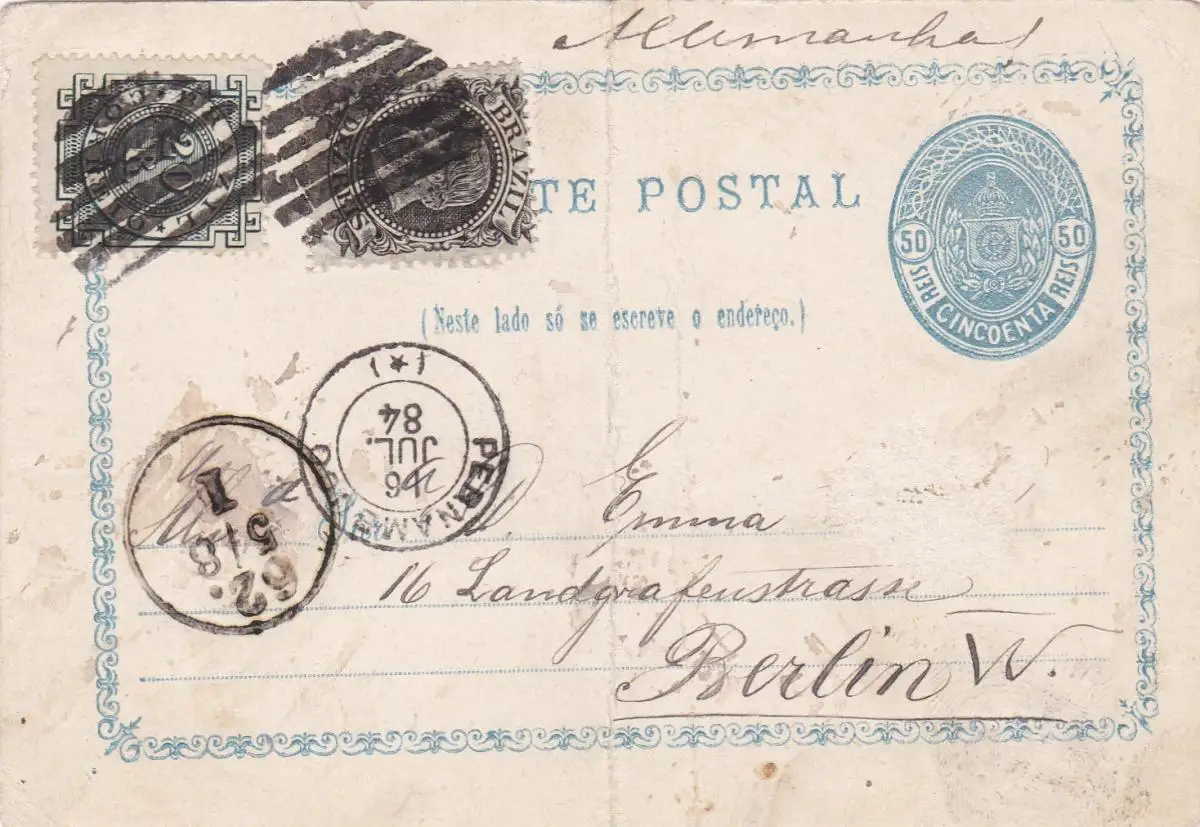 Allemanha
BRAZIL
20
R
CORREIO
BRAZIL
TE POSTAL
50
50
REIS CINCOENTA REIS
(Neste lado só se escreve o endereço.)
PERNAMBUCO
16
JUL.
84
(★)
62.
5/8
1
Emma
16 Landgrafenstrasse
Berlin W.